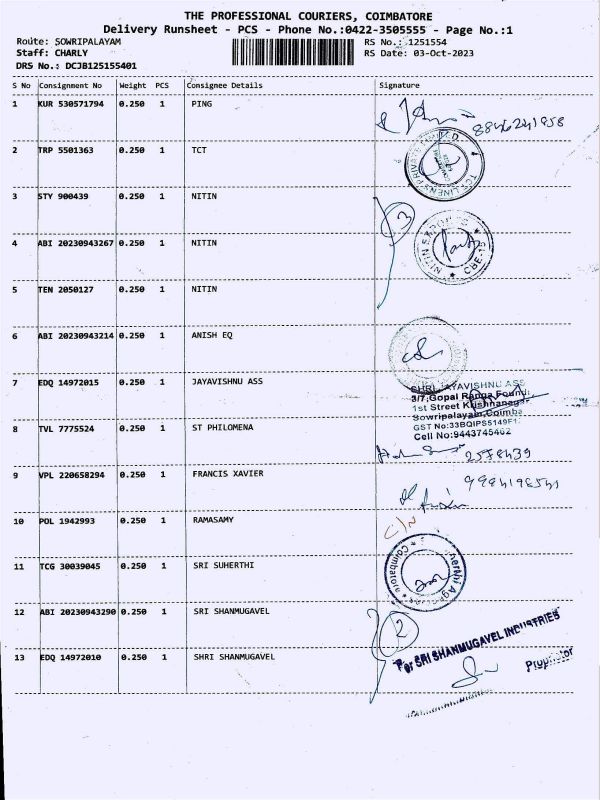 THE PROFESSIONAL COURIERS, COIMBATORE
Delivery Runsheet - PCS - Phone No.:0422-3505555 - Page No.:1
Route: SOWRIPALAYAM RS No.: 1251554
Staff: CHARLY RS Date: 03-Oct-2023
DRS No.: DCJB125155401
S No Consignment No Weight PCS Consignee Details Signature
1 KUR 530571794 0.250 1 PING
8846241958
2 TRP 5501363 0.250 1 TCT
TCT LINENS PRIVATE LIMITED
3 STY 900439 0.250 1 NITIN
3
4 ABI 20230943267 0.250 1 NITIN
NITIN EXPORTS CBE-15
5 TEN 2050127 0.250 1 NITIN
6 ABI 20230943214 0.250 1 ANISH EQ
7 EDQ 14972015 0.250 1 JAYAVISHNU ASS
SHRI JAYAVISHNU ASS
3/7, Gopal Ranga
1st Street Krishnanagar
Sowripalayam, Coimba
GST No:33BQIPS5149F1
Cell No:9443745462
8 TVL 7775524 0.250 1 ST PHILOMENA
2578439
9 VPL 220658294 0.250 1 FRANCIS XAVIER
10 POL 1942993 0.250 1 RAMASAMY
C/N
11 TCG 30039045 0.250 1 SRI SUHERTHI
Coimbatore
12 ABI 20230943290 0.250 1 SRI SHANMUGAVEL
2
For SRI SHANMUGAVEL INDUSTRIES
13 EDQ 14972010 0.250 1 SHRI SHANMUGAVEL